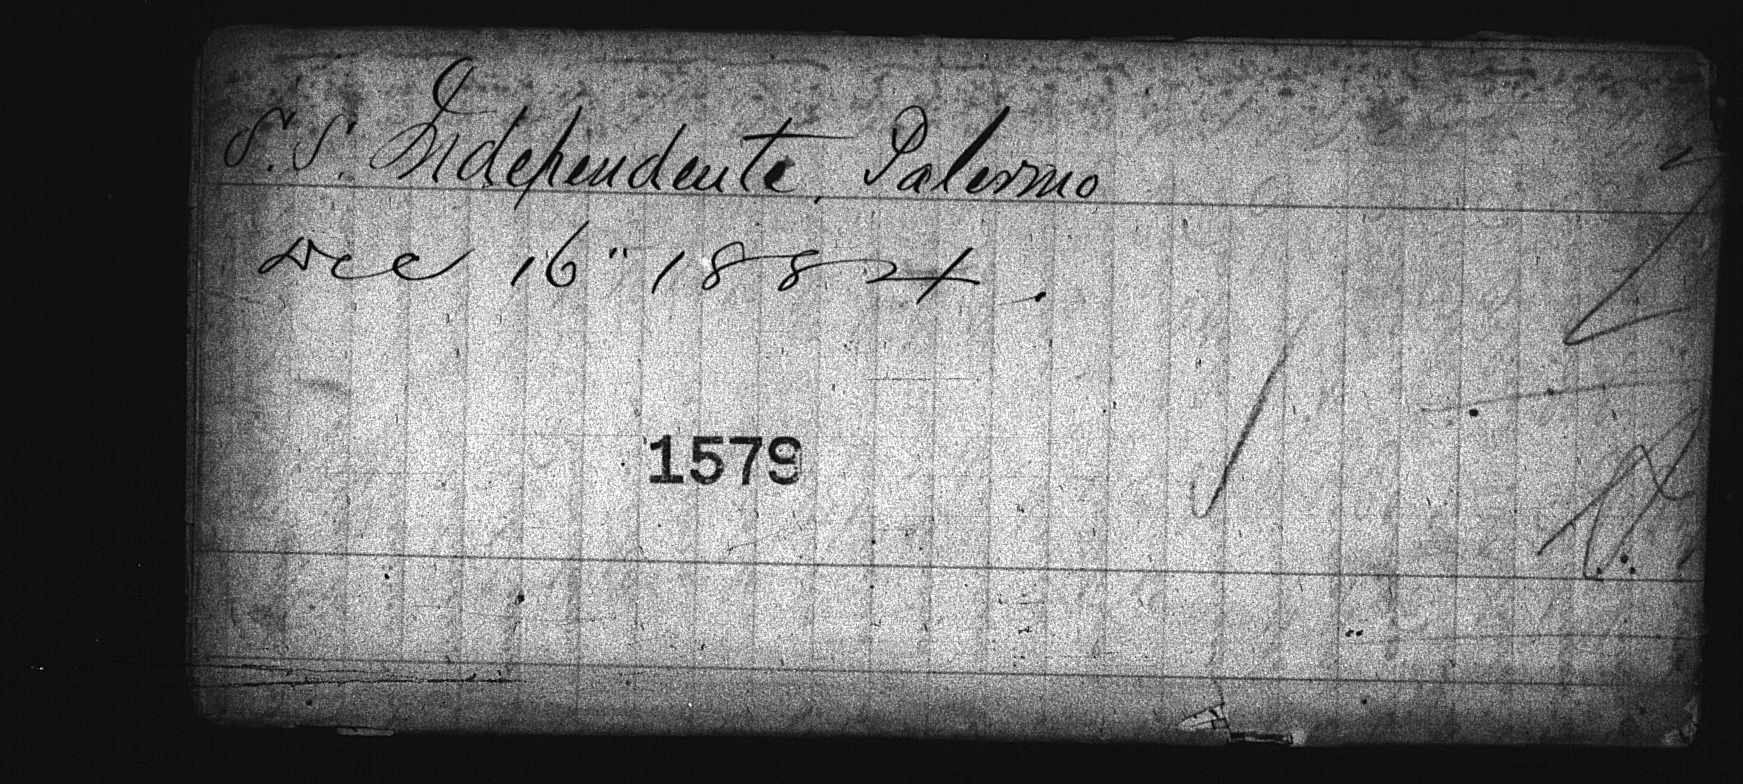 S.S. Independente, Palermo
Dec 16" 1884.
1579